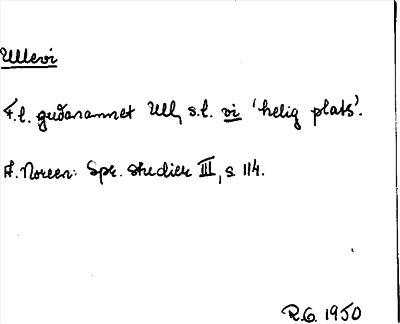 Ullevi
F.l. gudanamnet Ull, s.l. vi 'helig plats'.
A. Noreen: Spr. studier III, s. 114.
R.G. 1950